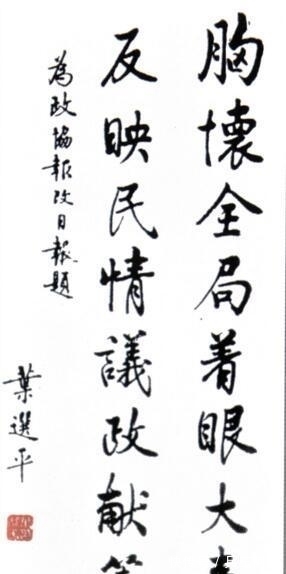 胸懷全局着眼大
反映民情議政献
為政協報改日報題
葉選平